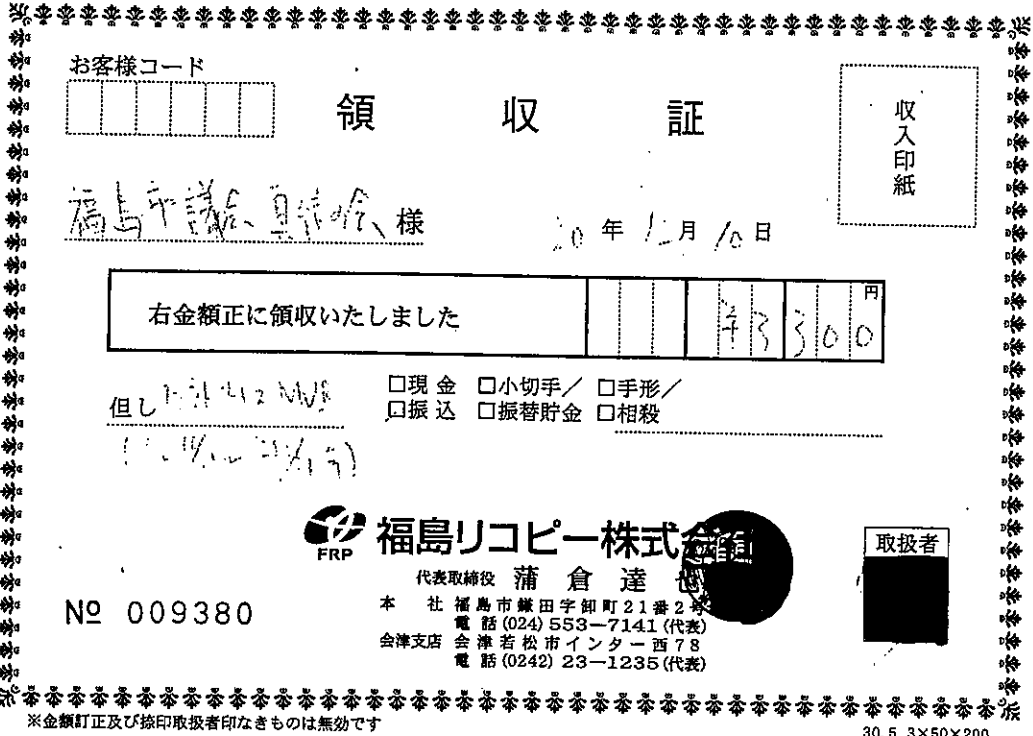 お客様コード
領収証
収入印紙
福島市議会 真結の会 様
30年12月10日
右金額正に領収いたしました
円
¥3300
但し
□現金 □小切手/ □手形/
□振込 □振替貯金 □相殺
FRP
福島リコピー株式会社
代表取締役 蒲倉達也
取扱者
№ 009380
本社 福島市鎌田字卸町21番2号
電話(024)553-7141(代表)
会津支店 会津若松市インター西78
電話(0242)23-1235(代表)
※金額訂正及び捺印取扱者印なきものは無効です
30.5.3×50×200